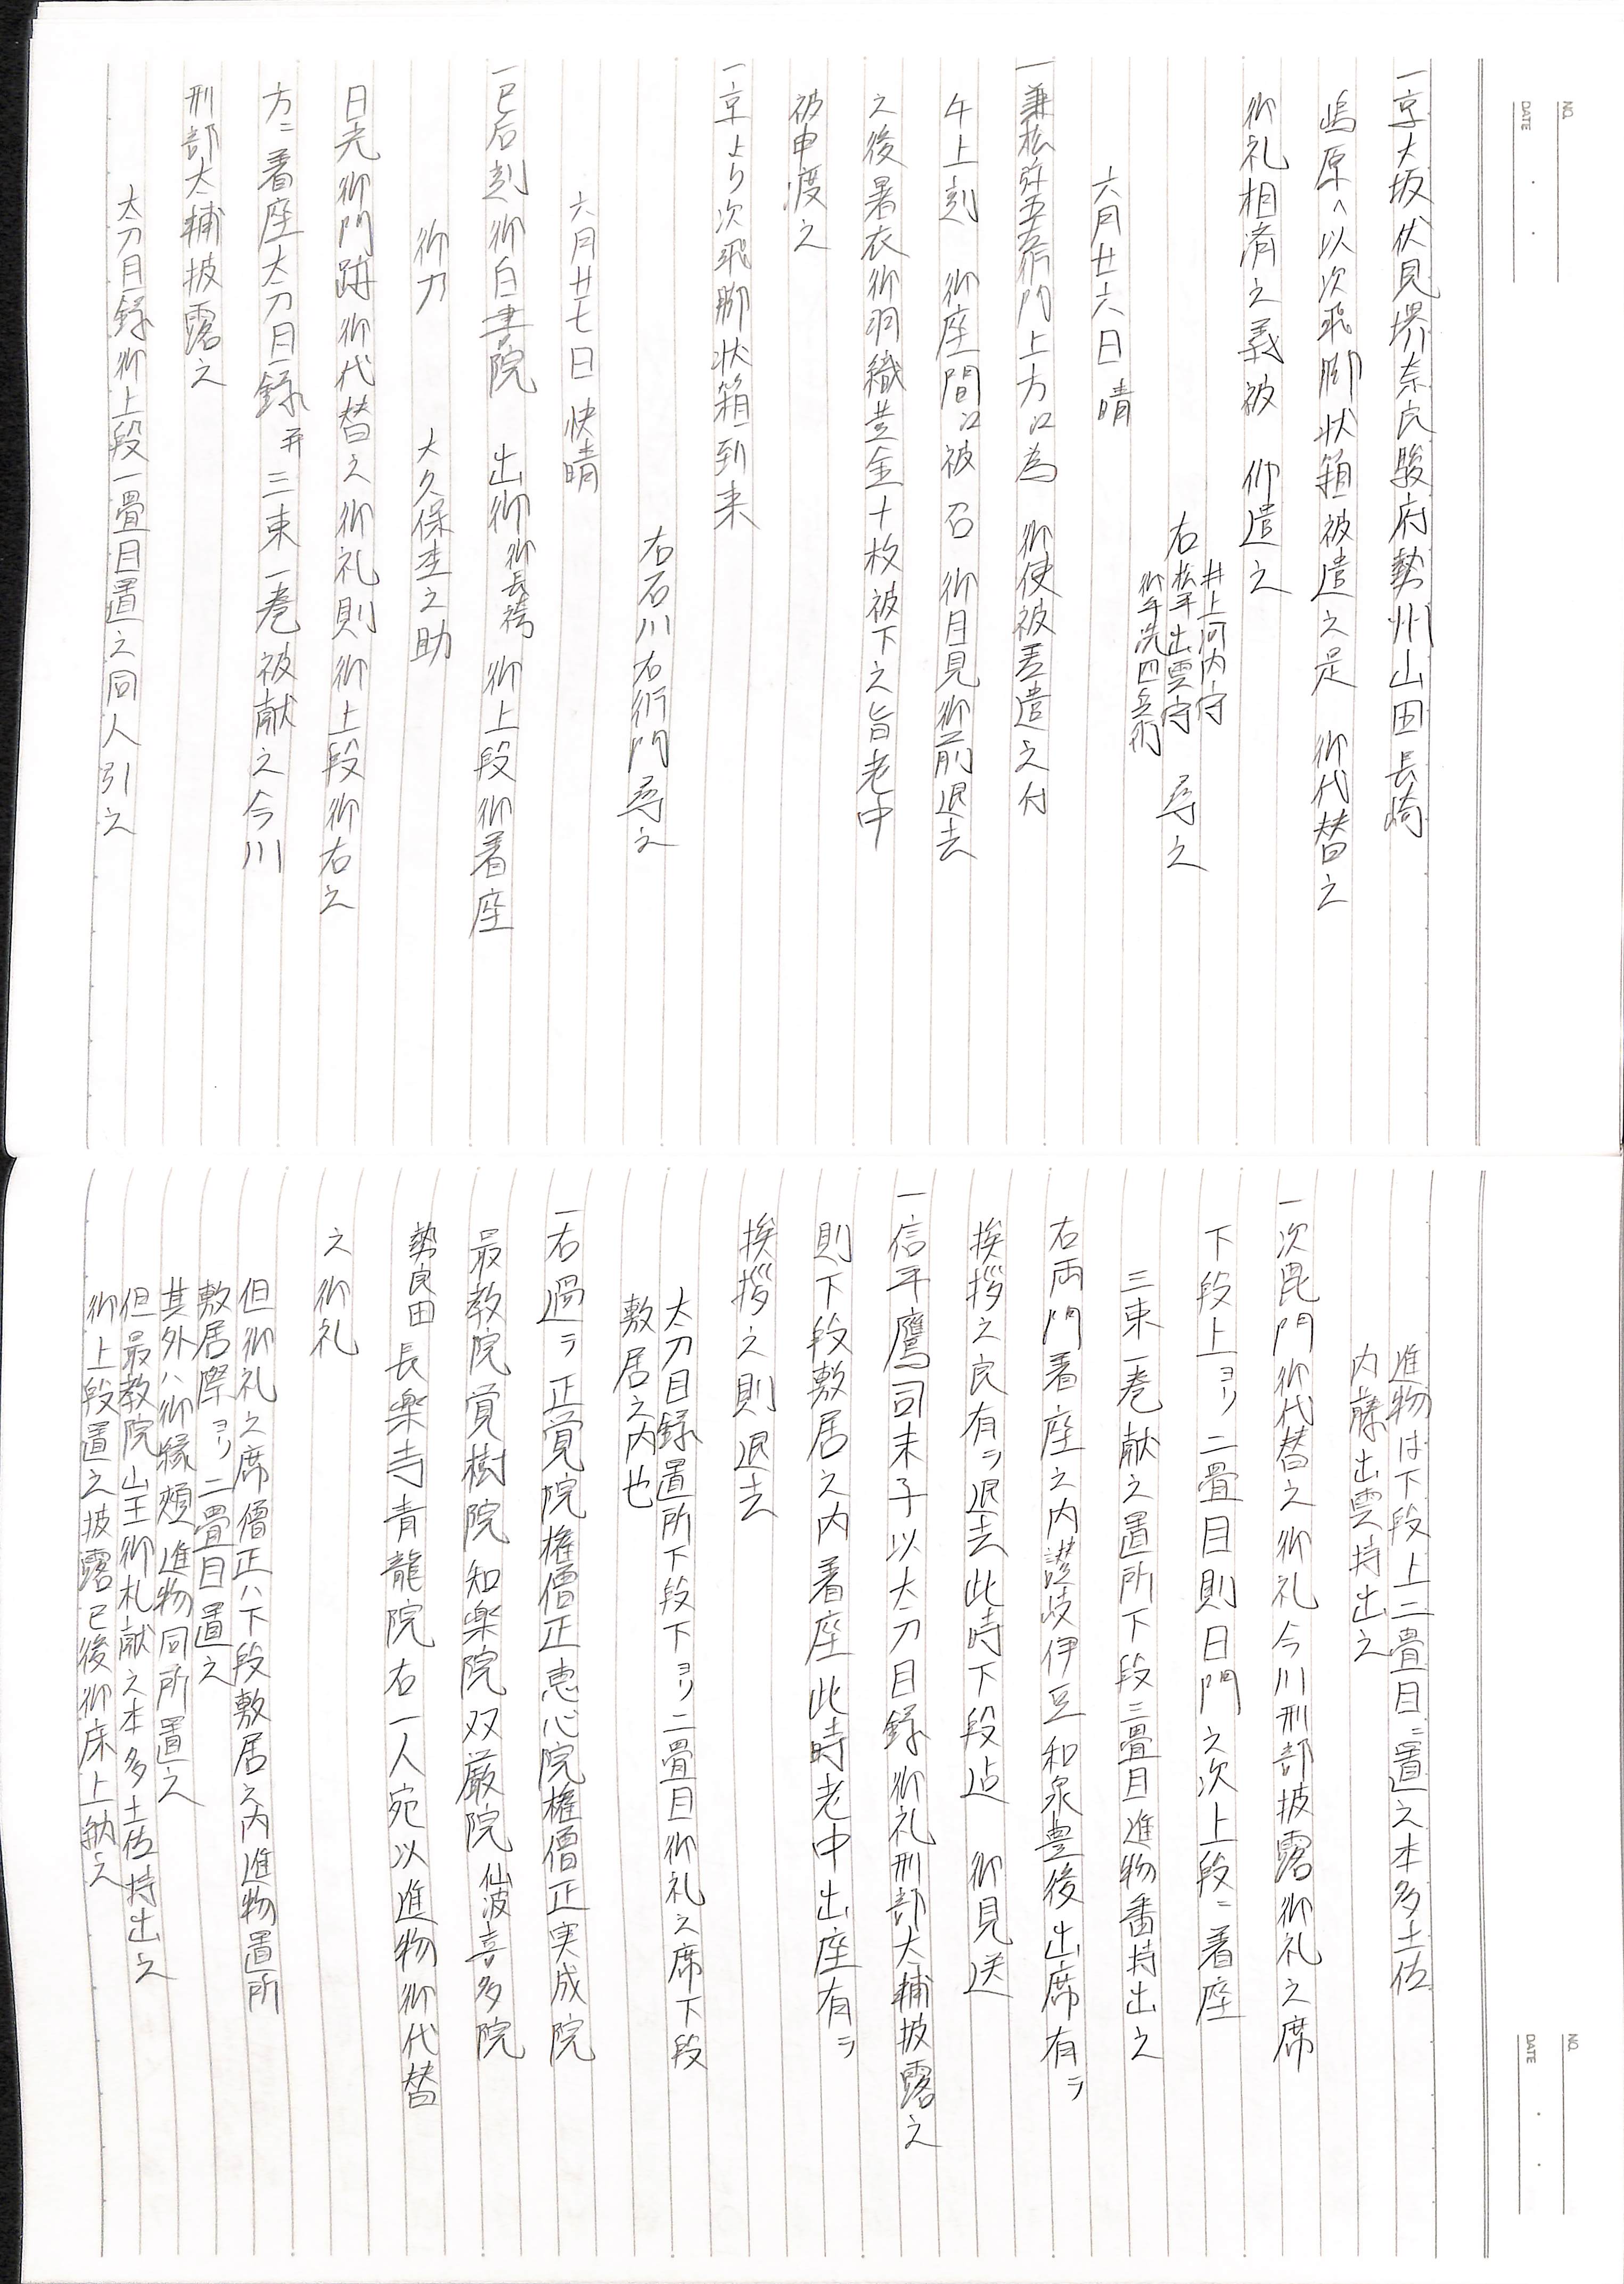 NO.
DATE
一京大坂伏見堺奈良駿府勢州山田長崎
嶋原へ以次飛脚状箱被遣之是 御代替之
御礼相済之義被 仰遣之
井上河内守
右松平出雲守 尋之
御手洗四兵衛
六月廿六日 晴
一兼松弥五左衛門上方江為 御使被差遣之付
午上刻 御座間江被 召 御目見御前退去
之後暑衣御羽織並金十枚被下之旨老中
被申渡之
一京より次飛脚状箱到来
右石川右衛門尋之
六月廿七日 快晴
一巳后刻御白書院 出御御長袴 御上段御着座
御刀 大久保杢之助
日光御門跡御代替之御礼則御上段御右之
方ニ着座太刀目録并三束一巻被献之今川
刑部大輔披露之
太刀目録御上段一畳目置之同人引之
NO.
DATE
進物は下段上二畳目ニ置之本多土佐
内藤出雲持出之
一次毘門御代替之御礼今川刑部披露御礼之席
下段上ヨリ二畳目則日門之次上段ニ着座
三束一巻献之置所下段三畳目進物番持出之
右両門着座之内讃岐伊豆和泉豊後出席有ラ
挨拶之良有ラ退去此時下段迠 御見送
一信平鷹司末子以太刀目録御礼刑部大輔披露之
則下段敷居之内着座此時老中出座有ラ
挨拶之則退去
太刀目録置所下段下ヨリ二畳目御礼之席下段
敷居之内也
一右過ラ正覚院権僧正恵心院権僧正実成院
最教院覚樹院知楽院双厳院仙波喜多院
勢良田長楽寺青龍院右一人宛以進物御代替
之御礼
但御礼之席僧正ハ下段敷居之内進物置所
敷居際ヨリ二畳目置之
其外ハ御縁頬進物同所置之
但最教院山王御札献之本多土佐持出之
御上段置之披露已後御床上納之